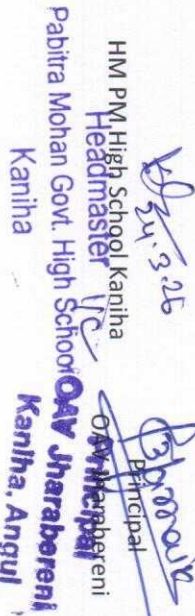 24.3.26
HM PM High School Kaniha
Headmaster I/C
Pabitra Mohan Govt. High School
Kaniha
Principal
OAV Jharabereni
Principal
OAV Jharabereni
Kaniha, Angul